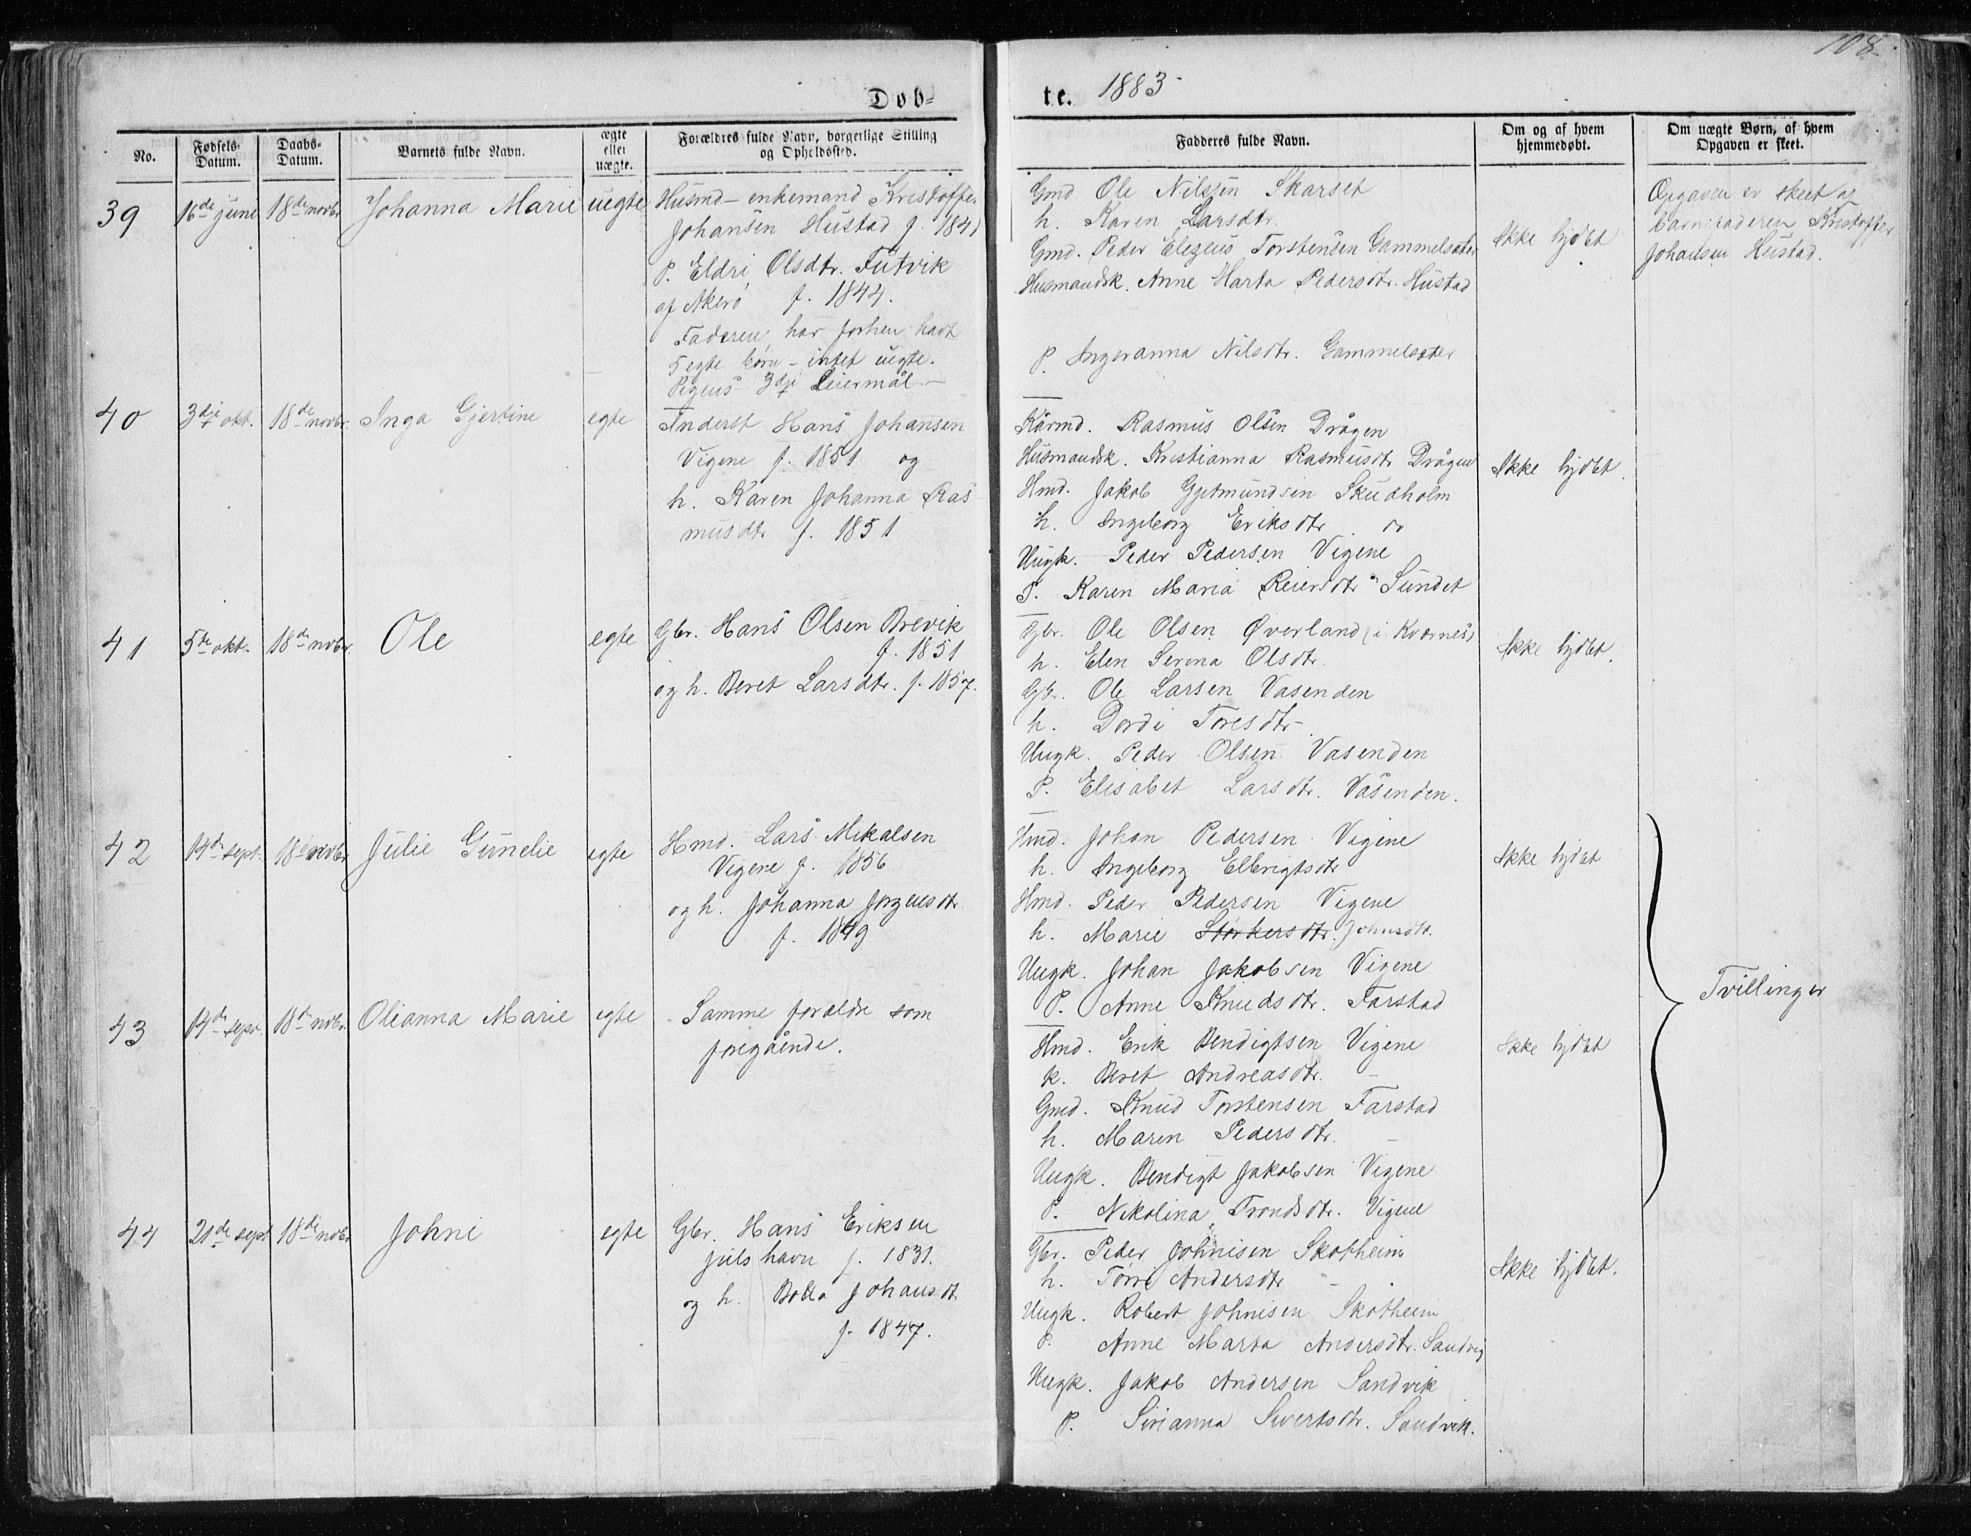 108.
Døb-
te. 1883
No.
Fødsels-
Datum.
Daabs-
Datum.
Barnets fulde Navn.
ægte
eller
uægte.
Forældres fulde Navn, borgerlige Stilling
og Opholdssted.
Fadderes fulde Navn.
Om og af hvem
hjemmedøbt.
Om uægte Børn, af hvem
Opgaven er skeet.
39
16de june
18de novbr
Johanna Marie
uegte
Husmd- enkemand Kristoffer
Johansen Hustad f. 1841
P. Eldri Olsdtr. Futvik
af Akerø f. 1844.
Faderen har forhen havt
5 egte børn - intet uegte.
Pigens 3dje Leiermål.
Gmd Ole Nilssen Skarset
h. Karen Larsdtr.
Gmd. Peder Elezeus Torstensen Gammelsæter
Husmandsk. Anne Marta Pedersdtr. Hustad
P. Ingeranna Nilsdtr. Gammelsæter
Ikke lydet
Opgaven er skeet af
barnefaderen Kristoffer
Johansen Hustad.
40
3dje okt.
18de novbr.
Inga Gjertine
egte
Inderst Hans Johansen
Vigene f. 1851 og
h. Karen Johanna Ras
musdtr f. 1851
Kårmd. Rasmus Olsen Drågen
Husmandsk. Kristianna Rasmusdtr Drågen
Hmd. Jakob Gjetmundsen Skudholm
h. Ingeborg Eriksdtr do
Ungk. Peder Pedersen Vigene
P. Karen Maria Reiersdtr Sundet
Ikke lydet
41
5te okt.
18de novbr
Ole
egte
Gbr. Hans Olsen Brevik
f. 1851
og h. Beret Larsdtr. f. 1857.
Gbr. Ole Olsen Øverland (i Kværnes)
h. Elen Serina Olsdtr.
Gb. Ole Larsen Vasenden
h. Dordi Toresdtr
Ungk. Peder Olsen Vasenden
P. Elisabet Larsdtr. Vasenden.
Ikke lydet.
42
14de sept.
18de novbr
Julie Gunelie
egte
Hmd. Lars Mikalsen
Vigene f. 1856
og h. Johanna Jørgensdtr
f. 1849
Hmd. Johan Pedersen Vigene
h. Ingeborg Ellevigtsdtr
Hmd. Peder Pedersen Vigene
h. Marie Størkersdtr. Johnsdtr.
Ungk. Johan Jakobsen Vigene
P. Anne Knudsdtr. Farstad
Ikke lydet
Tvillinger
43
14de sept.
18de novbr.
Olianna Marie
egte
Samme forældre som
foregående.
Hmd. Erik Bendigtsen Vigene
k. Beret Andreasdtr. -
Gmd. Knud Torstensen Farstad
h. Maren Pedersdtr. -
Ungk. Bendigt Jakobsen Vigene
P. Nikolina Trondsdtr. Vigene
Ikke lydet
44
21de sept
18de novbr
Johni
egte
Gbr. Hans Eriksen
Julshavn f. 1831.
og h. Bolla Johansdt.
f. 1847.
Gbr. Peder Johnisen Skotheim
h. Torri Andersdtr -
Ungk. Robert Johnisen Skotheim
P. Anne Marta Andersdtr. Sandvig
Ungk. Jakob Andersen Sandvik
P. Sirianna Sivertsdtr. Sandvik.
Ikke lydet.